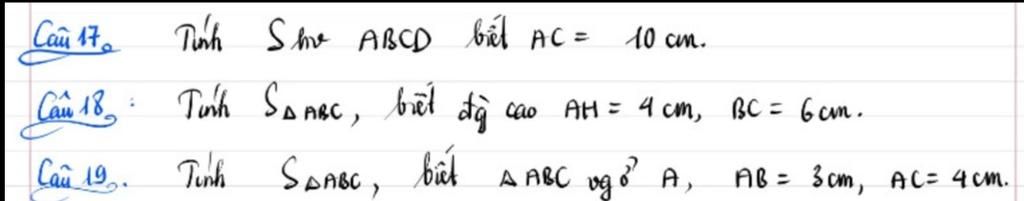 Câu 17. Tính S hv ABCD biết AC = 10 cm.
Câu 18: Tính S△ABC, biết đg cao AH = 4 cm, BC = 6 cm.
Câu 19. Tính S△ABC, biết △ABC vg ở A, AB = 3 cm, AC = 4 cm.